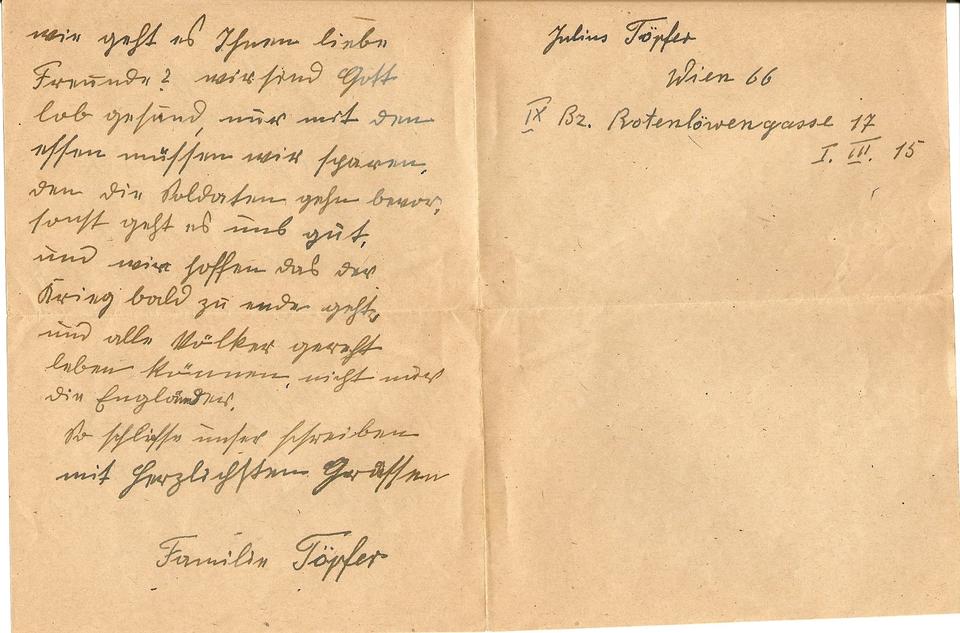 wie geht es Ihnen liebe
Freunde? wir sind Gott
lob gesund, nur mit den
essen müssen wir sparen,
den die Soldaten gehn bevor,
sonst geht es uns gut,
und wir hoffen das der
Krieg bald zu ende geht,
und alle Völker gerecht
leben können, nicht nur
die Engländer.
So schlisse unser schreiben
mit Herzlichsten Grüssen
Familie Töpfer
Julius Töpfer
Wien 66
IX Bz. Rotenlöwengasse 17
I. III. 15